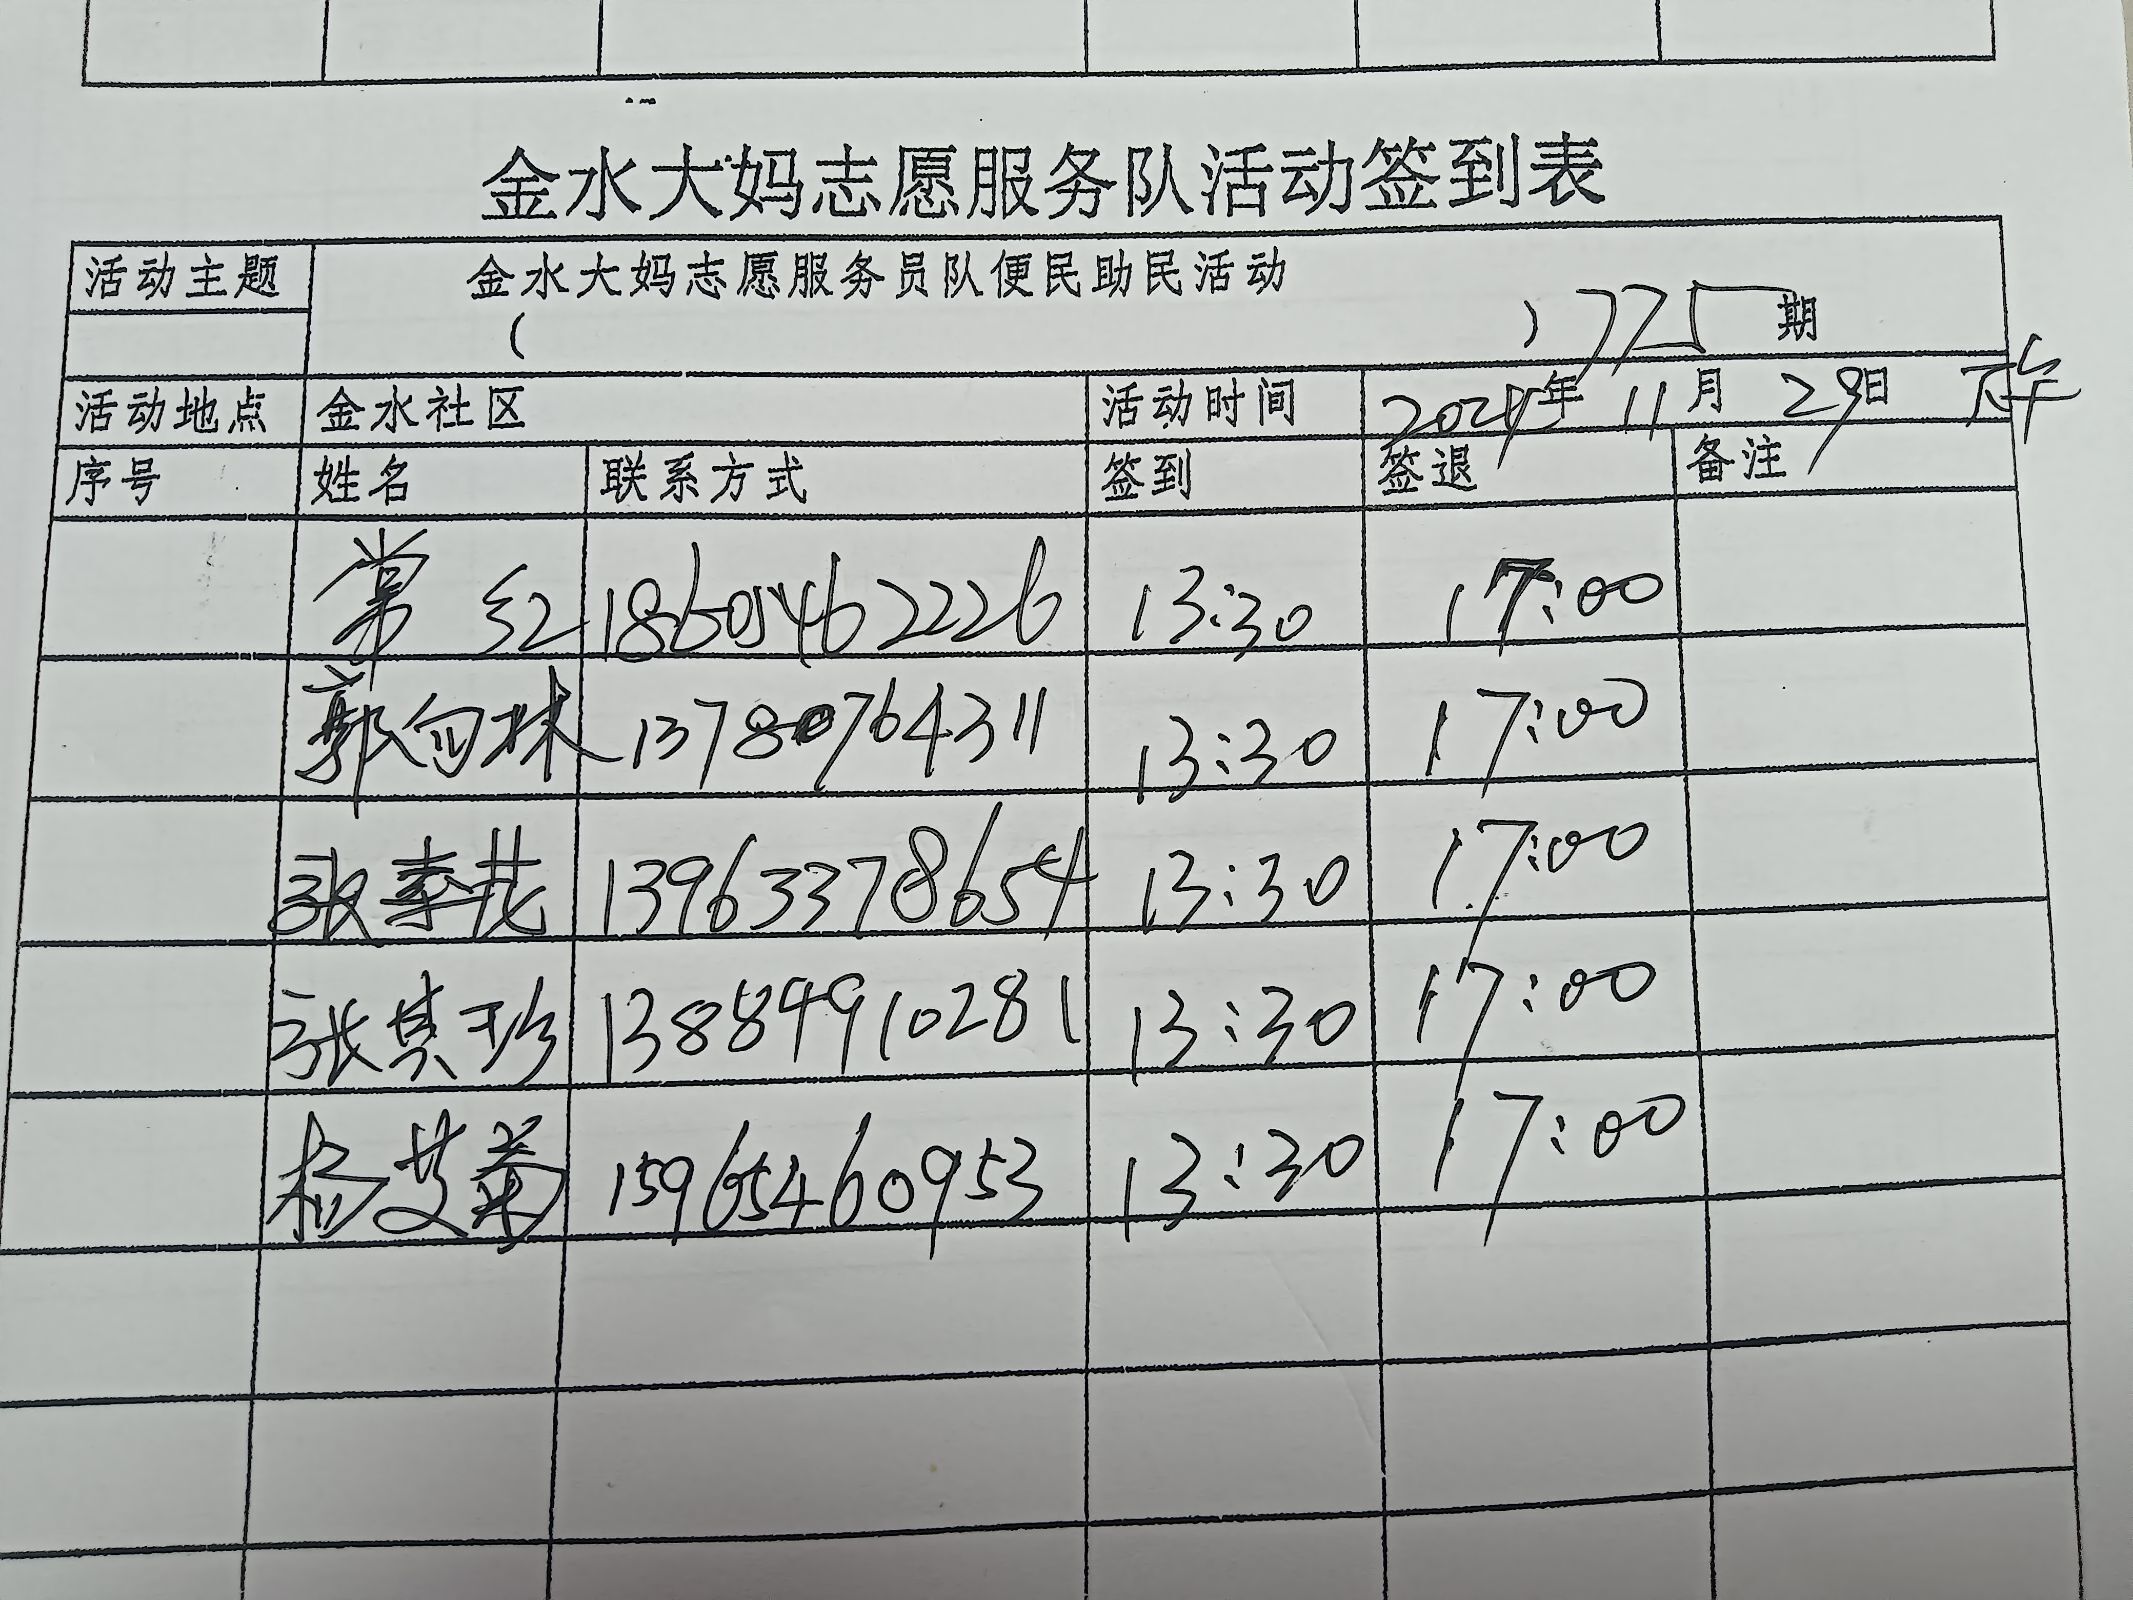 金水大妈志愿服务队活动签到表
活动主题 金水大妈志愿服务员队便民助民活动
( ) 期
活动地点 金水社区 活动时间 2024年 11月 29日 下午
序号 姓名 联系方式 签到 签退 备注
常红 18605462226 13:30 17:00
郭向林 13780764311 13:30 17:00
张 13963378654 13:30 17:00
张其珍 13884910281 13:30 17:00
杨艾菊 15965460953 13:30 17:00